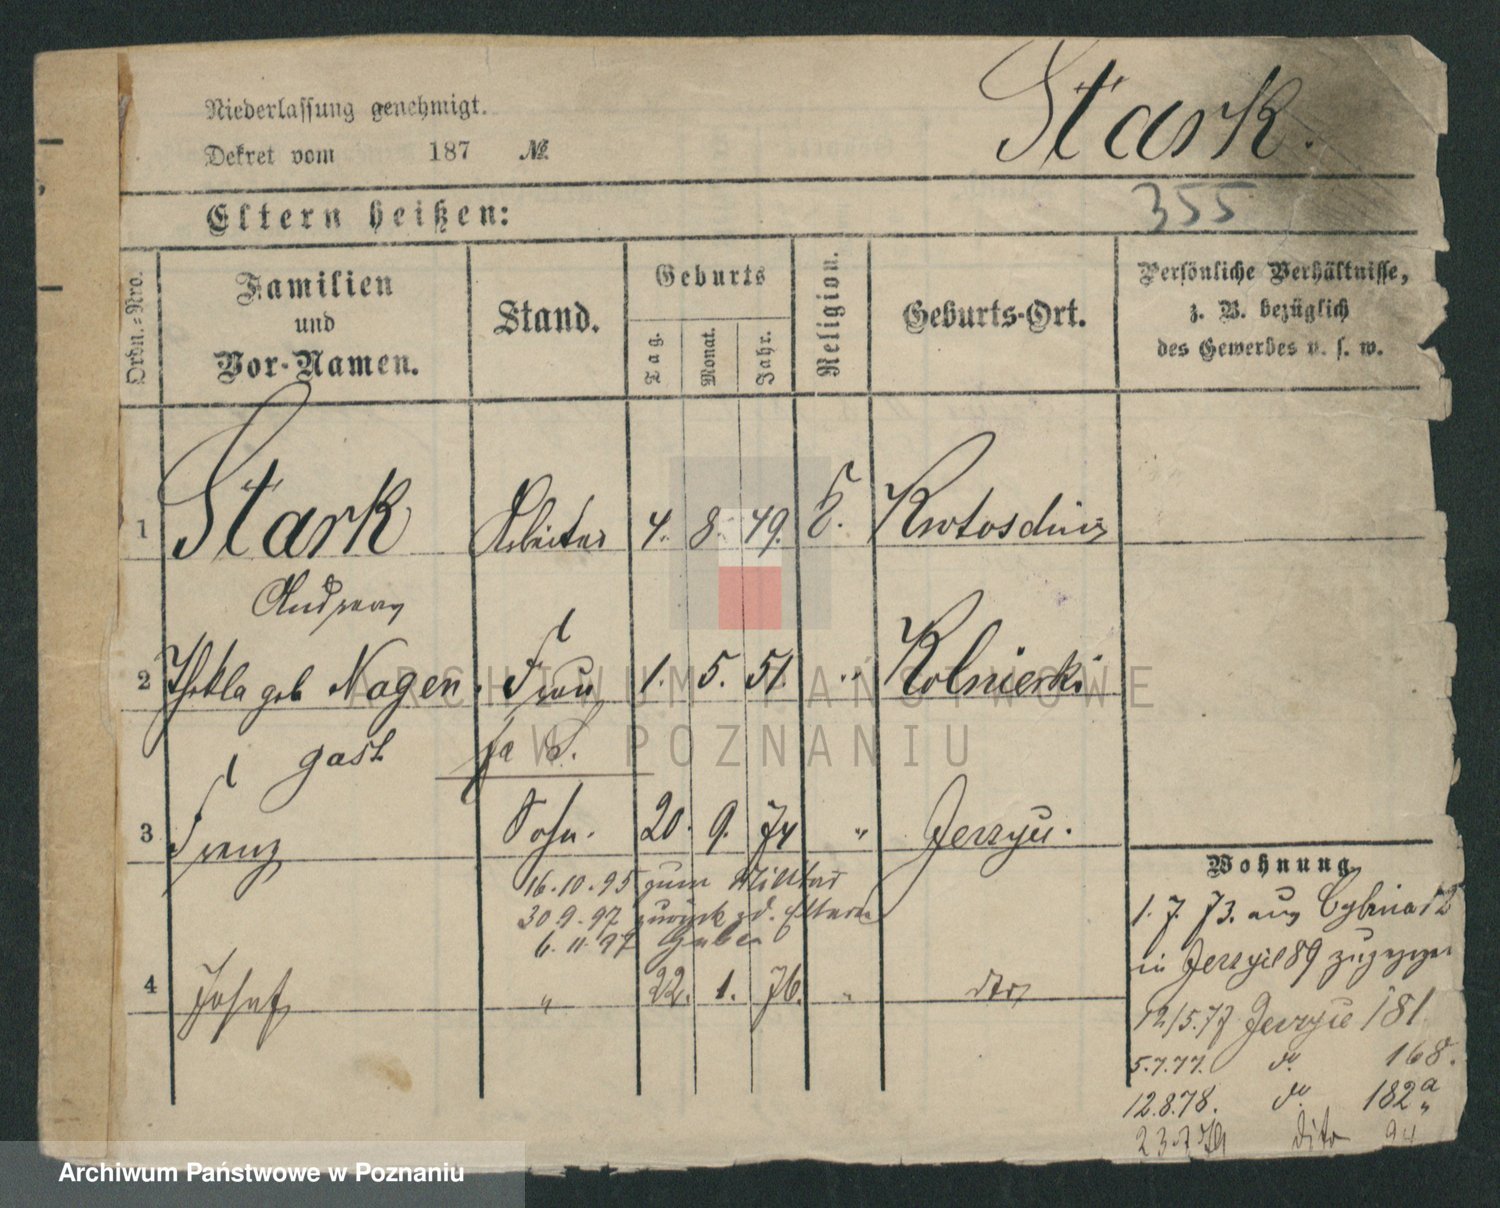 Niederlassung genehmigt.
Dekret vom 187 №
Stark.
355
Eltern heißen:
Ordn.=Nro.
Familien
und
Vor-Namen.
Stand.
Geburts
Tag.
Monat.
Jahr.
Religion.
Geburts-Ort.
Persönliche Verhältnisse,
z. B. bezüglich
des Gewerbes u. s. w.
1 Stark Arbeiter 4. 8. 49. Krotoschin
Andreas
2 Thekla geb Nagen Frau 1. 5. 51. „ Kolnierki
gast
3 Franz Sohn. 20. 9. 74 „ Jerzyce.
16.10.95 zum Militär
30.9.97 zurück z. d. Eltern
6.11.97
4 Josef „ 22. 1. 76. „ dto
Wohnung
1. 7. 73. aus
in 89 zugezogen
12/5.77 Jerzyce 181
5.7.77. do 168.
12.8.78. do 182a
dito 94
ARCHIWUM PAŃSTWOWE
W POZNANIU
Archiwum Państwowe w Poznaniu